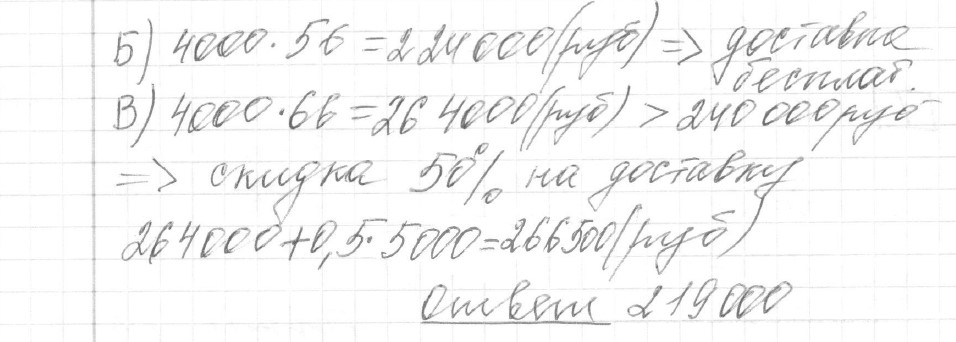 Б) 4000·56=224000(руб) => доставка
бесплат.
В) 4000·66=264000(руб) > 240000руб
=> скидка 50% на доставку
264000+0,5·5000=266500(руб)
Ответ 219000